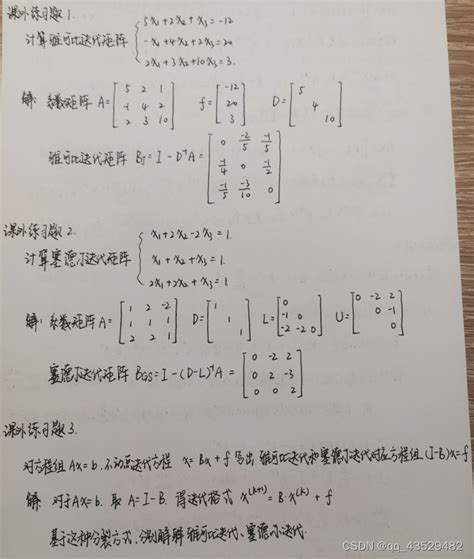 课外练习题1.
计算雅可比迭代矩阵 { 5x₁+2x₂+x₃=-12
-x₁+4x₂+2x₃=20
2x₁+3x₂+10x₃=3.
解: 系数矩阵 A= [ 5 2 1 ; -1 4 2 ; 2 3 10 ] f= [ -12 ; 20 ; 3 ] D= [ 5 ; 4 ; 10 ]
雅可比迭代矩阵 B_J=I-D⁻¹A= [ 0 -2/5 -1/5 ; 1/4 0 -1/2 ; -1/5 -3/10 0 ]
课外练习题2.
计算塞德尔迭代矩阵 { x₁+2x₂-2x₃=1.
x₁+x₂+x₃=1.
2x₁+2x₂+x₃=1
解: 系数矩阵 A= [ 1 2 -2 ; 1 1 1 ; 2 2 1 ] D= [ 1 ; 1 ; 1 ] L= [ 0 ; -1 0 ; -2 -2 0 ] U= [ 0 -2 2 ; 0 -1 ; 0 ]
塞德尔迭代矩阵 B_GS=I-(D-L)⁻¹A= [ 0 -2 2 ; 0 2 -3 ; 0 0 2 ]
课外练习题3.
对方程组 Ax=b, 不动点迭代方程 x=Bx+f 写出雅可比迭代和塞德尔迭代对应方程组(I-B)x=f
解: 对于Ax=b. 取 A=I-B. 得迭代格式 x^(k+1)=B·x^(k)+f
基于这种分裂方式, 分别解释雅可比迭代、塞德尔迭代.
CSDN @qq_43529482